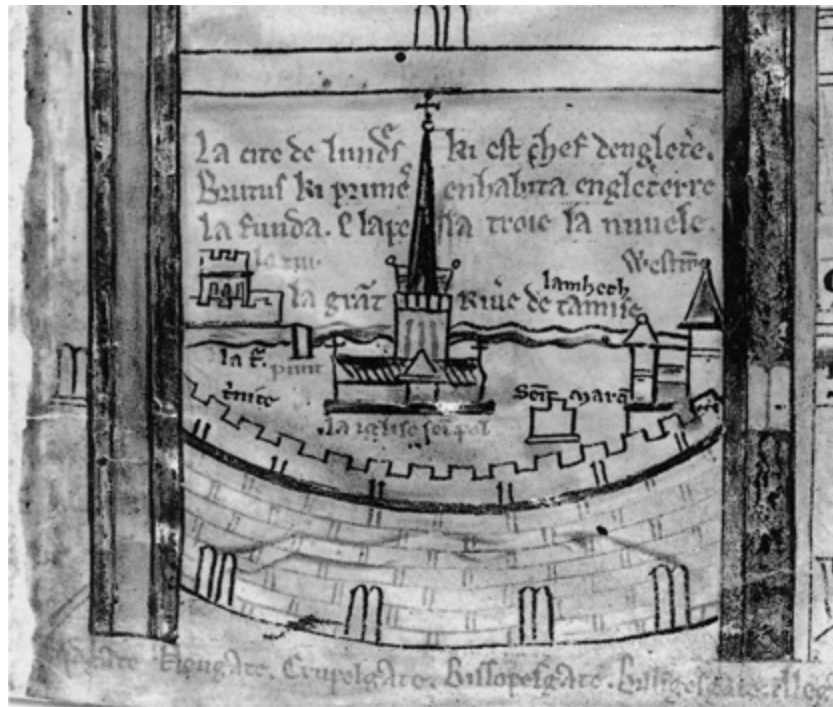 La cite de lundr̃s ki est chef denglet̃e.
Brutus ki prim̃ enhabita engleterre
la funda. E lapela troie la nuvele.
la tur
Westm̃
lamheth
la grãt Rive de tamise
la t̃
punt
t̃nite
Seĩt Marc̃
la iglise sei pol
Neugate. Crupelgate. Bissopesgate. Billigesgate. Alleg